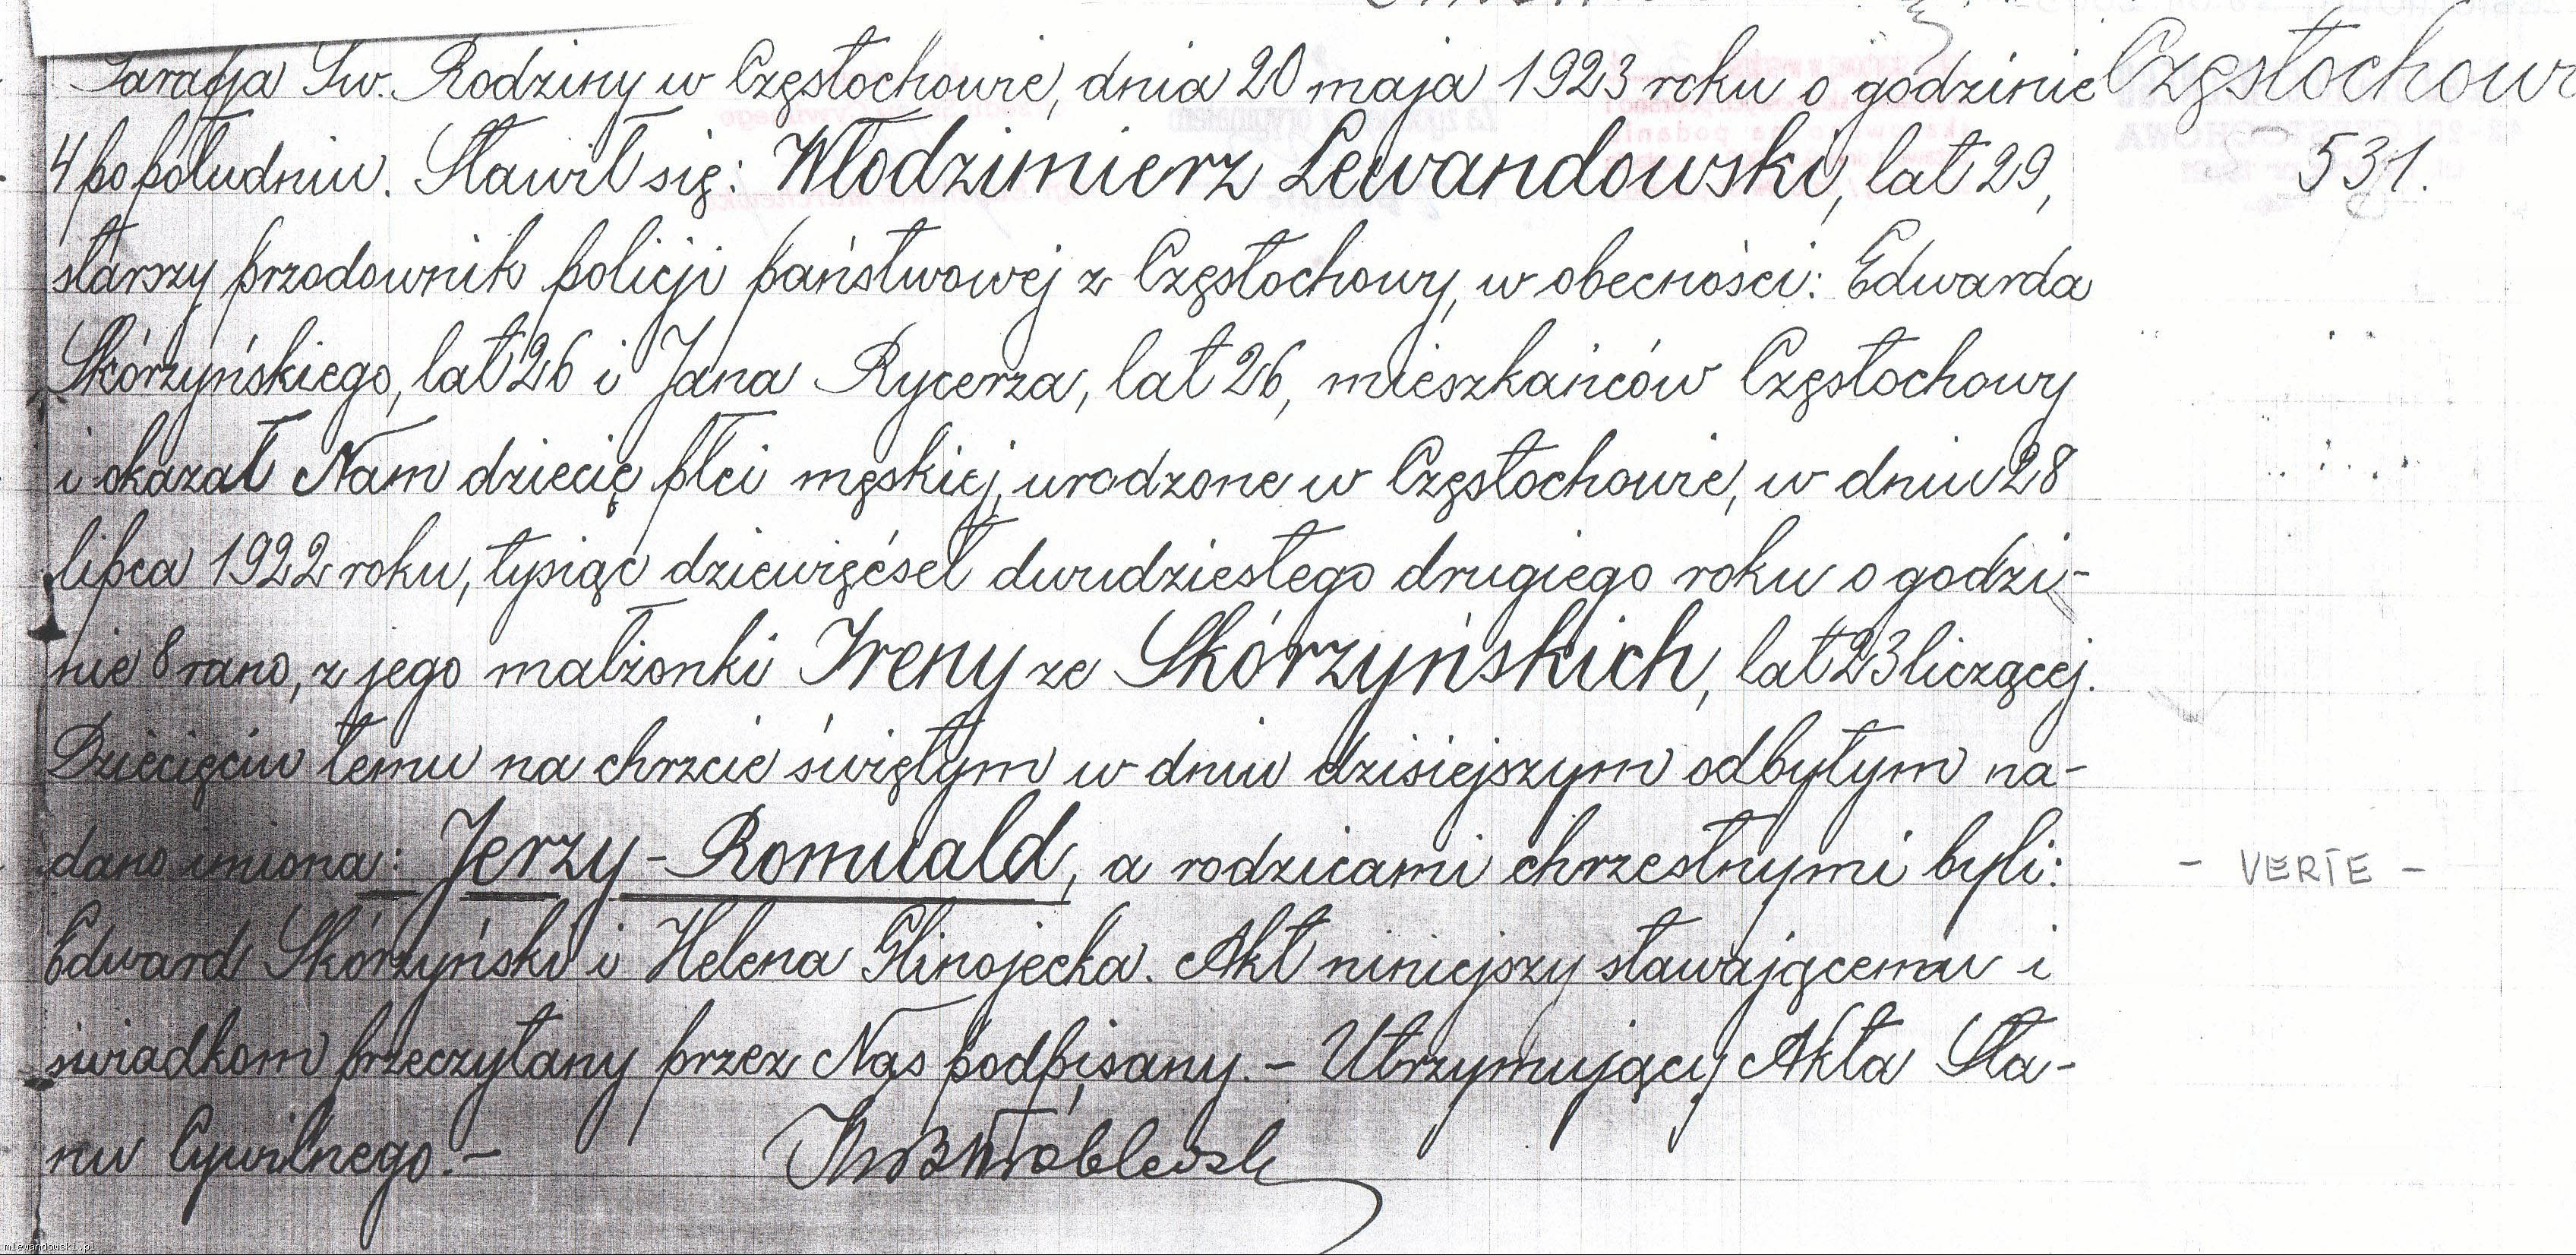 Parafja Św. Rodziny w Częstochowie, dnia 20 maja 1923 roku o godzinie
4 po południu. Stawił się: Włodzimierz Lewandowski, lat 29,
starszy przodownik policji państwowej z Częstochowy, w obecności: Edwarda
Skórzyńskiego, lat 26 i Jana Rycerza, lat 26, mieszkańców Częstochowy
i okazał Nam dziecię płci męskiej, urodzone w Częstochowie, w dniu 28
lipca 1922 roku, tysiąc dziewięćset dwudziestego drugiego roku o godzi-
nie 8 rano, z jego małżonki Ireny ze Skórzyńskich, lat 23 liczącej.
Dziecięciu temu na chrzcie świętym w dniu dzisiejszym odbytym na-
dano imiona: Jerzy-Romuald, a rodzicami chrzestnymi byli:
Edward Skórzyński i Helena Glinojecka. Akt niniejszy stawającemu i
świadkom przeczytany przez Nas podpisany.- Utrzymujący Akta Sta-
nu Cywilnego.-
Częstochowa
531.
- VERTE -
mlewandowski.pl